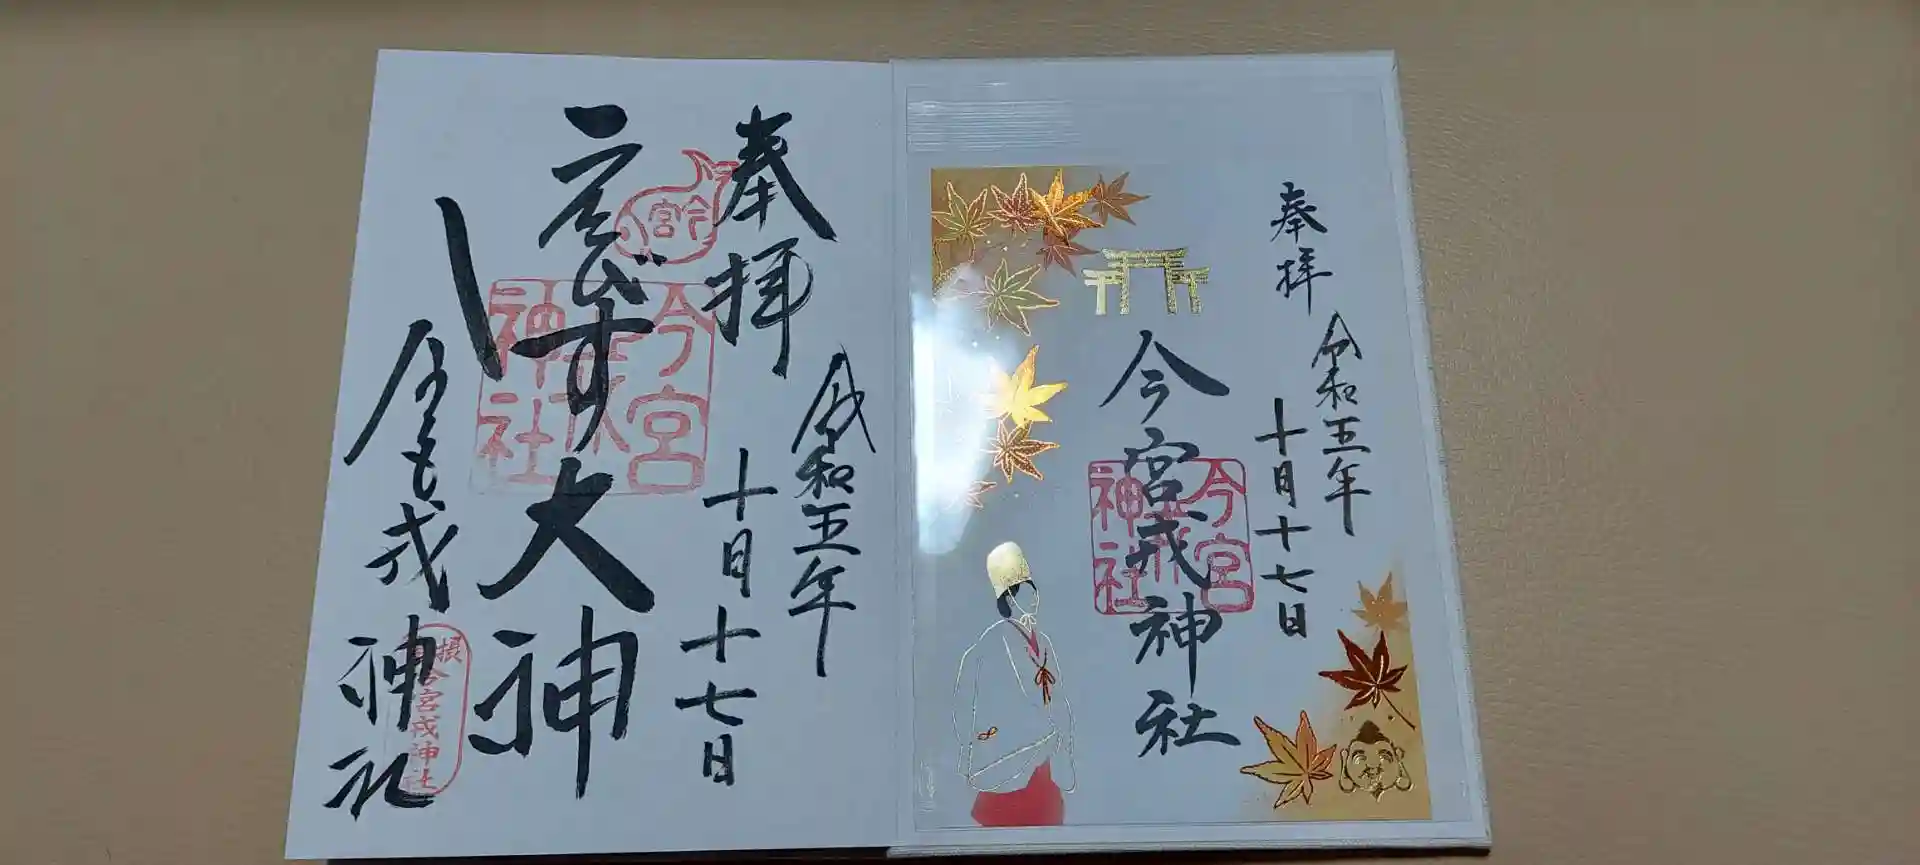 奉拝
令和五年
十月十七日
今宮戎神社
今宮戎神社
奉拝
令和五年
十月十七日
今宮
えびす大神
今宮戎神社
今宮戎神社
今宮戎神社